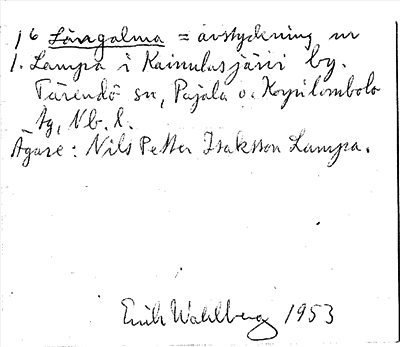 1⁶ Långalma = avstyckning nr
1. Lampa i Kainulasjärvi by.
Tärendö sn, Pajala o. Korpilombolo
tg, Nb. l.
Ägare: Nils Petter Isaksson Lampa.
Erik Wahlberg 1953